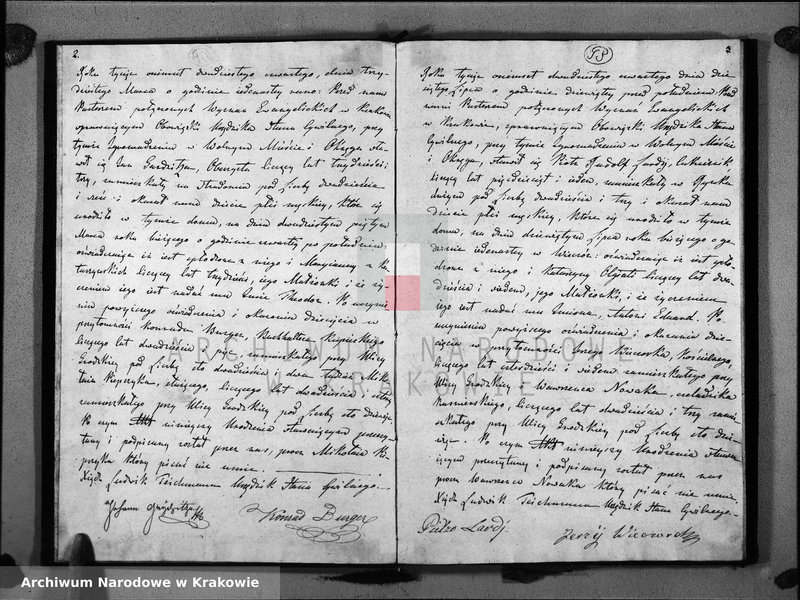 2.
Roku tysiąc osiemset dwudziestego czwartego, dnia trzy-
dziestego Marca o godzinie iedenastey rano: Przed nami
Pastorem połączonych Wyznań Ewangelickich w Krakowie
sprawuiącym Obowiązki Urzędnika Stanu Cywilnego, przy
tymże Zgromadzeniu w Wolnym Mieście i Okręgu sta-
wił się Jan Obywatel liczący lat trzydzieści
trzy, zamieszkały na pod liczbą dwudziestą
i okazał nam dziecie płci męskiey, które się
urodziło w tymże domu, na dniu dwudziestym piątym
Marca roku bieżącego o godzinie czwartey po południu;
oświadczaiąc iż iest spłodzone z niego i Maryanny z
liczącey lat trzydzieści, iego Małżonki; i iż ży-
czeniem iego iest nadać mu Imie Theodor. Po uczynie-
niu powyższego oświadczenia i okazaniu dziecięcia w
przytomności Konrada Burger, Buchhaltera
liczącego lat dwadzieścia i przy Ulicy
Grodzkiey pod liczbą sto dwadzieścia i dwa tudzież Miko-
łaia liczącego lat dwadzieścia i
zamieszkałego przy Ulicy Grodzkiey pod liczbą sto
Po czym ninieyszy Urodzenia Stawaiącym przeczy-
tany i podpisany został przez nas, prócz Mikołaia
który pisać nie umie.
Xiądz Ludwik Teichmann Urzędnik Stanu Cywilnego.
Johann
Konrad Burger
3
Roku tysiąc osiemset dwudziestego czwartego dnia dzie-
siątego Lipca o godzinie dziewiątey przed południem. Przed
nami Pastorem połączonych Wyznań Ewangelickich
w Krakowie, sprawuiącym Obowiązki Urzędnika Stanu
Cywilnego, przy tymże Zgromadzeniu w Wolnym Mieście
i Okręgu, stawił się Rudolf Lardy, cukiernik
liczący lat pięćdziesiąt i ieden, zamieszkały w Rynku
pod liczbą dwadzieścia i trzy i okazał nam
dziecie płci męskiey, które się urodziło w tymże
domu, na dniu dziewiątym Lipca roku bieżącego o go-
dzinie iedenastey w wieczór: oświadczaiąc iż iest spło-
dzone z niego i Katarzyny liczącey lat dwa-
dzieścia i siedem, iego Małżonki, i iż życzeniem
iego iest nadać mu Imiona, Antoni Eduard. Po
uczynieniu powyższego oświadczenia i okazaniu dzie-
cięcia w przytomności Jerzego Kościelnego,
liczącego lat czterdzieści i siedem zamieszkałego przy
Ulicy Grodzkiey i Wawrzeńca Nowaka, czeladnika
liczącego lat dwadzieścia i trzy zamie-
szkałego przy Ulicy Grodzkiey pod liczbą sto
Po czym ninieyszy Urodzenia Stawa-
iącym przeczytany i podpisany został przez nas
prócz Wawrzeńca Nowaka który pisać nie umie.
Xiądz Ludwik Teichmann Urzędnik Stanu Cywilnego.
Pietro Lardy
Jerzÿ
ARCHIWUM NARODOWE
W KRAKOWIE
Archiwum Narodowe w Krakowie